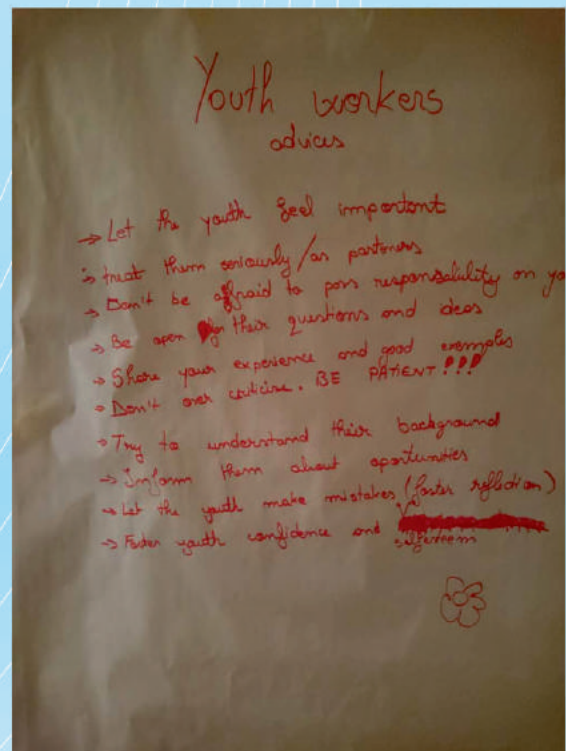 Youth workers
advices
→ Let the youth feel important
→ treat them seriously/as partners
→ Don't be affraid to pass responsability on yo
→ Be open for their questions and ideas
→ Share your experience and good exemples
→ Don't over criticise. BE PATIENT!!!
→ Try to understand their background
→ Inform them about oportunities
→ Let the youth make mistakes (foster reflection)
→ Foster youth confidence and